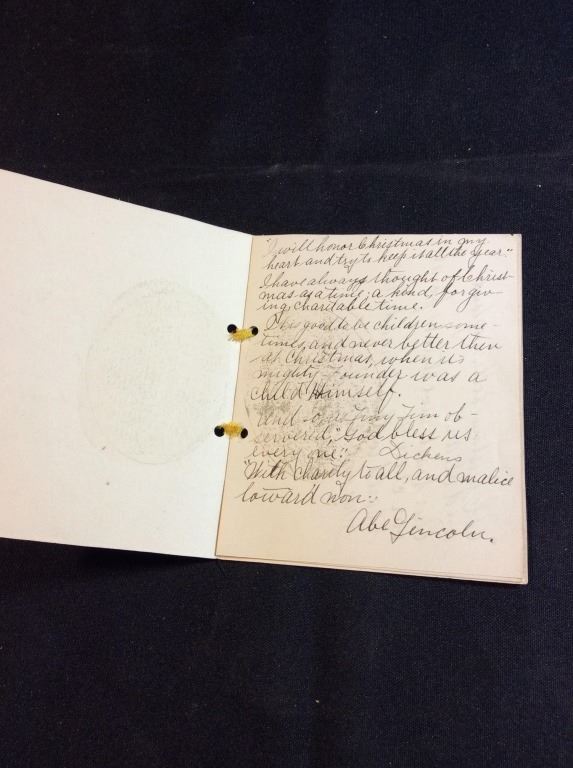 "I will honor Christmas in my
heart and try to keep it all the year."
I have always thought of Christ-
mas as a time; a kind, forgiv-
ing, charitable time.
It is good to be children some-
times, and never better then
at Christmas, when its
mighty Founder was a
child Himself.
And so as Tiny Tim ob-
servered, "God bless us
every one". Dickens
"With Charity to all, and malice
toward non"
Abe Lincoln.